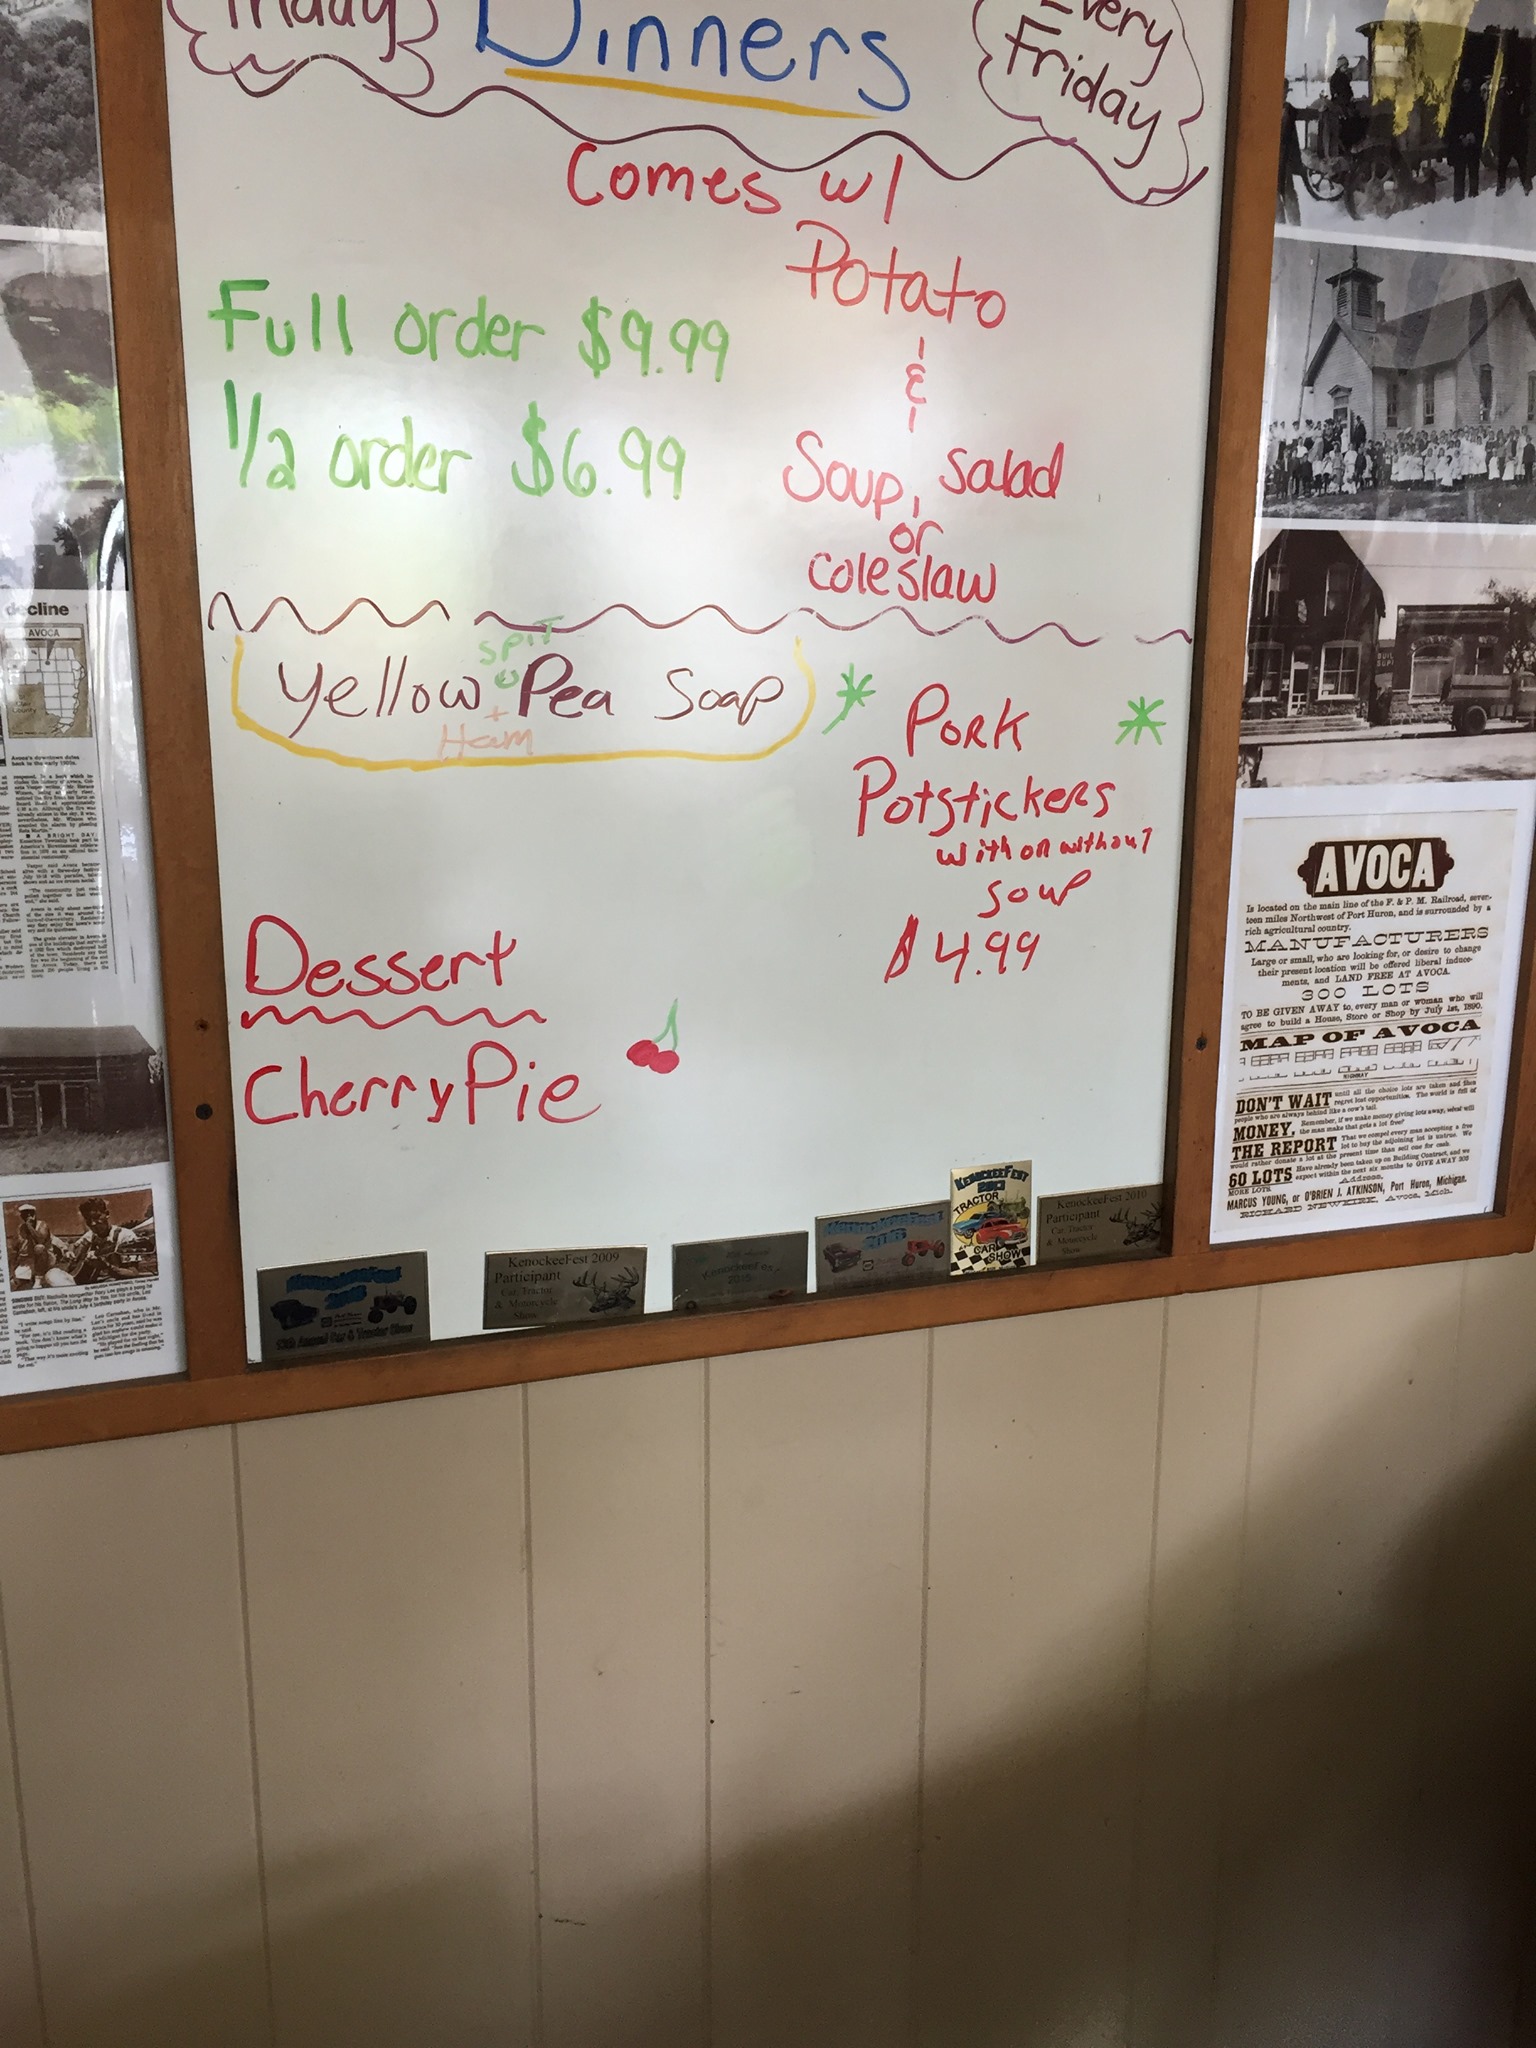 Friday
Dinners
Every
Friday
Comes w/
Potato
&
Soup, salad
or
coleslaw
Full order $9.99
1/2 order $6.99
spit
Yellow Pea Soap
+
Ham
Pork
Potstickers
with or without
soup
$4.99
Dessert
Cherry Pie
KenockeeFest 2009
Participant
Car, Tractor
& Motorcycle
Show
KenockeeFest
2015
KenockeeFest
2013
TRACTOR
CAR
SHOW
KenockeeFest 2010
Participant
Car, Tractor
& Motorcycle
Show
decline
AVOCA
Avoca's downtown dates
back to the early 1900s.
AVOCA
Is located on the main line of the F. & P. M. Railroad, seven-
teen miles Northwest of Port Huron, and is surrounded by a
rich agricultural country.
MANUFACTURERS
Large or small, who are looking for, or desire to change
their present location will be offered liberal induce-
ments, and LAND FREE AT AVOCA.
300 LOTS
TO BE GIVEN AWAY to, every man or woman who will
agree to build a House, Store or Shop by July 1st, 1890.
MAP OF AVOCA
HIGHWAY
DON'T WAIT until all the choice lots are taken and then
regret lost opportunities. The world is full of
people who are always behind like a cow's tail.
MONEY, Remember, if we make money giving lots away, what will
the man make that gets a lot free?
THE REPORT That we compel every man accepting a free
lot to buy the adjoining lot is untrue. We
would rather donate a lot at the present time than sell one for cash.
60 LOTS Have already been taken up on Building Contract, and we
expect within the next six months to GIVE AWAY 300
MORE LOTS.
Address,
MARCUS YOUNG, or O'BRIEN J. ATKINSON, Port Huron, Michigan.
RICHARD NEWKIRK, Avoca, Mich.